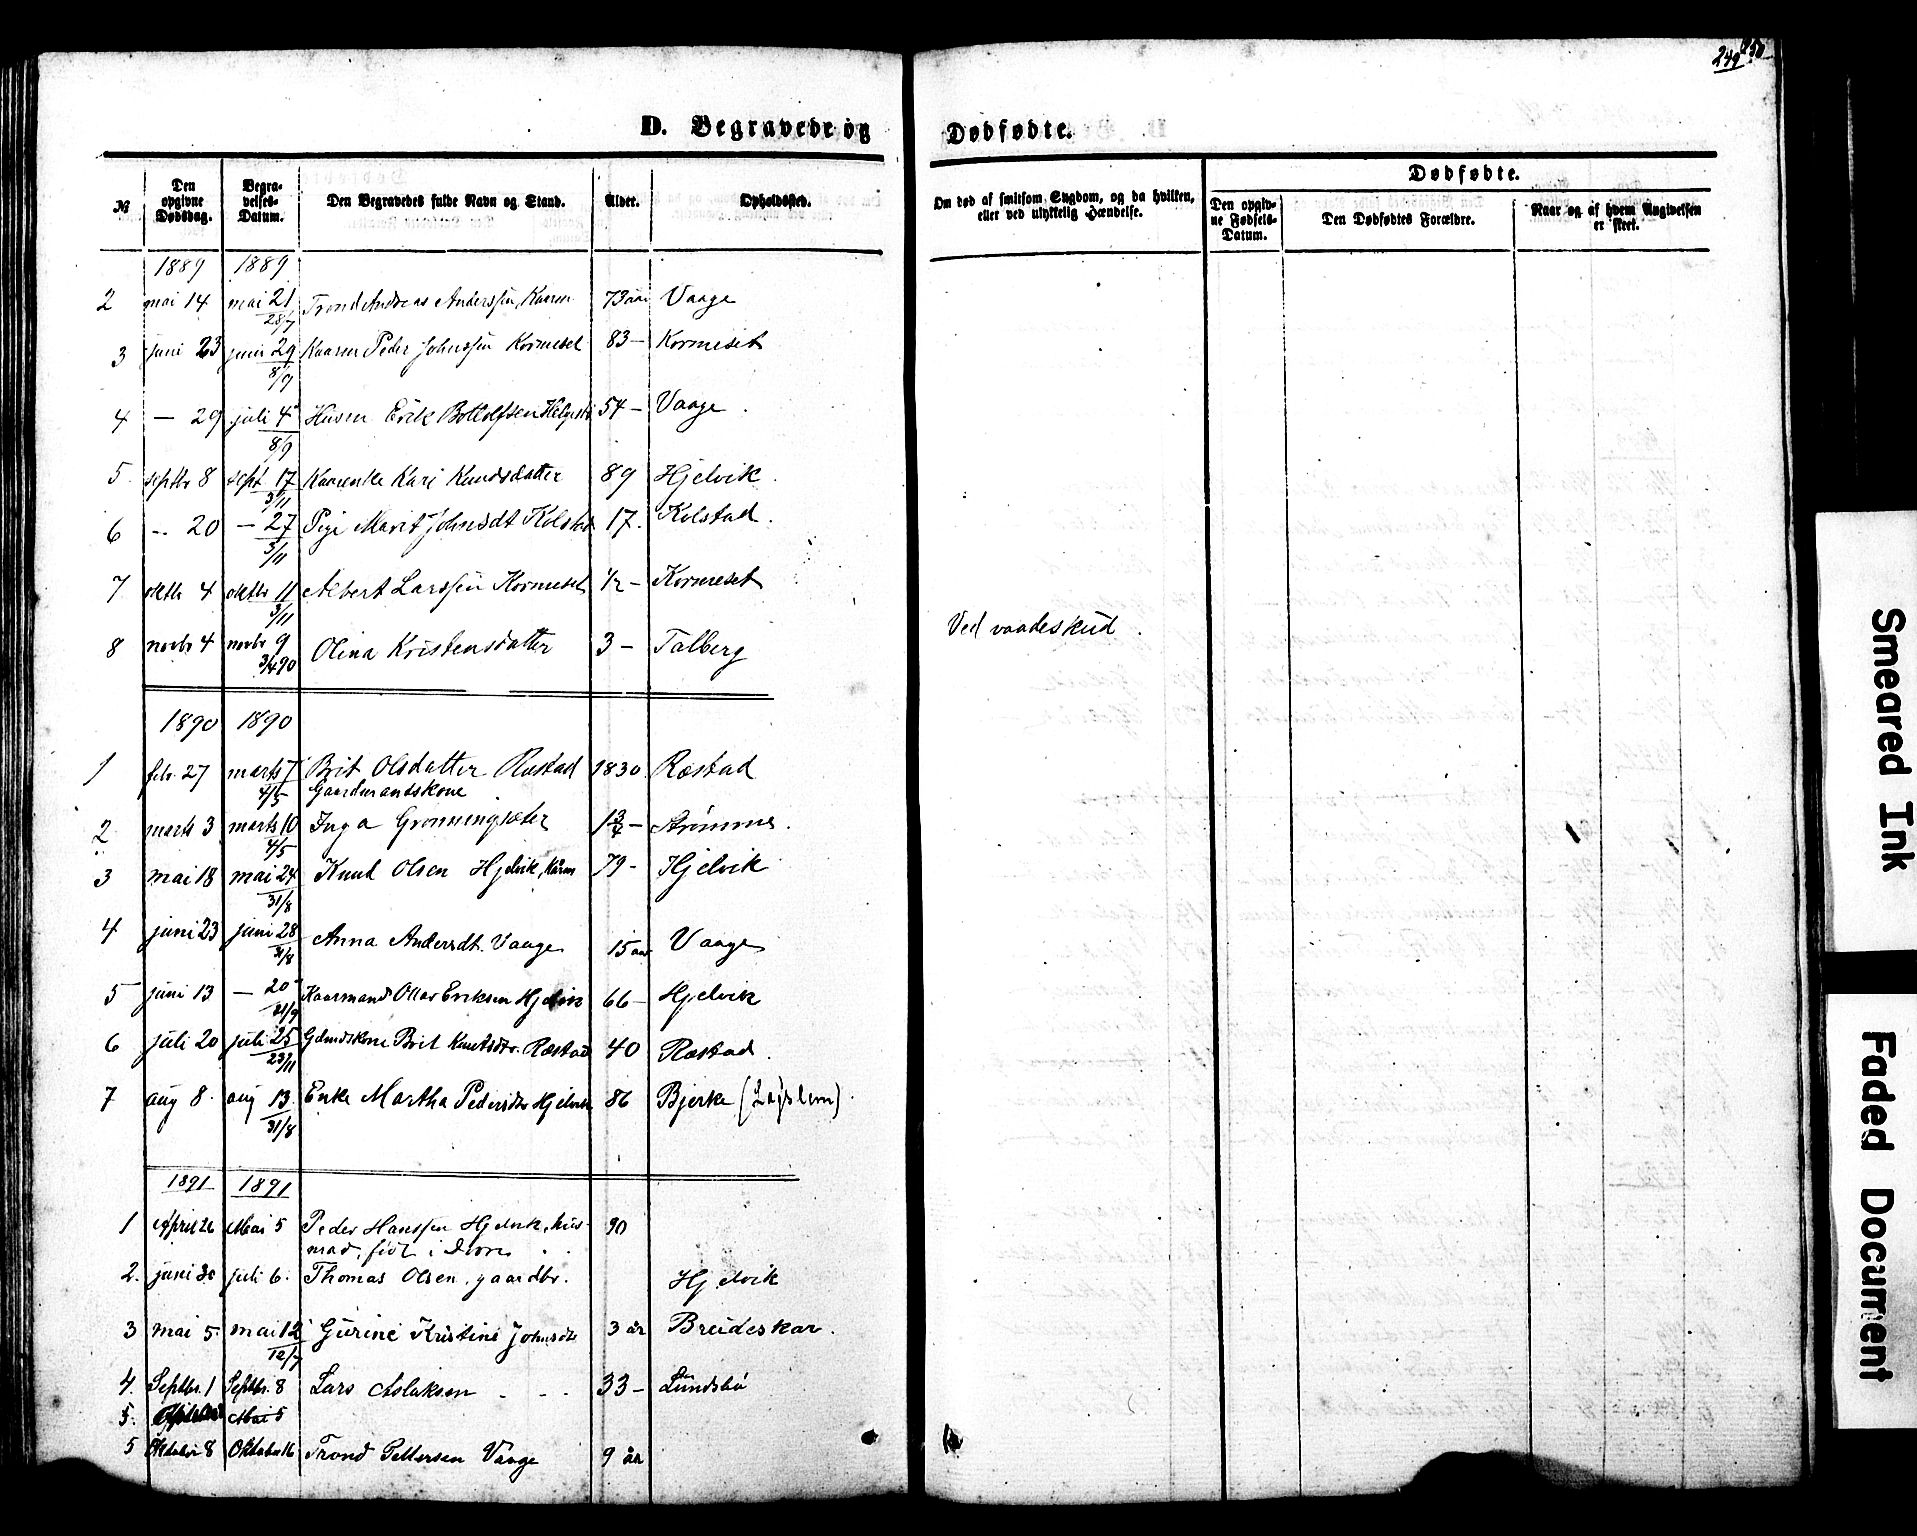 249
D. Begravede og Dødfødte.
№ Den opgivne Dødsdag. Begravelses-Datum. Den Begravedes fulde Navn og Stand. Alder. Opholdssted. Om død af smitsom Sygdom, og da hvilken, eller ved ulykkelig Hændelse.
Dødfødte.
Den opgivne Fødsels-Datum. Den Dødfødtes Forældre. Naar og af hvem Angivelsen er skeet.
1889 1889
2 mai 14 mai 21 Trond Andreas Anderssen, Kaarm 73 aar Vaage
28/7
3 juni 23 juni 29 Kaarm Peder Johnssen Kormeset 83 — Kormeset
8/9
4 — 29 juli 4 Husm Erik Bottolfsen 54 — Vaage
8/9
5 septbr 8 sept 17 Kaarenke Kari Knudsdatter 89 Hjelvik
3/11
6 — 20 — 27 Pige Marit Johnsdt Kolstad 17. Kolstad.
3/11
7 oktbr 4 oktbr 11 Albert Larssen Kormeset 1/2 — Kormeset
3/11
8 novbr 4 novbr 9 Olina Kristensdatter 3 — Talberg Ved vaadeskud.
3/4 90
1890 1890
1 febr. 27 marts 7 Brit Olsdatter Ræstad 1830 Ræstad
4/5 Gaardmandskone
2 marts 3 marts 10 Inga Grønningsæter 1 3/4 — Strømmes.
4/5
3 mai 18 mai 24 Knud Olsen Hjelvik, Kårm 79 - Hjelvik
31/8
4 juni 23 juni 28 Anna Andersdt. Vaage 15 aar Vaage
31/8
5 juni 13 — 20 Kaarmand Ollav Eriksen Hjelvik 66 — Hjelvik
21/9
6 juli 20 juli 25 Gdmdskone Brit Knutsdtr. Ræstad 40 Ræstad.
23/11
7 aug 8. aug 13 Enke Martha Pedersdtr Hjelvik 86 Bjerke
31/8
1891 1891
1 April 26 Mai 5 Peder Hanssen Hjelvik, hus- 90
mad, født i
2. juni 30 juli 6. Thomas Olsen, gaardbr. Hjelvik
3 mai 5. mai 12 Gurine Kristine Johnsdt 3 år Breideskar.
12/7
4. Septbr. 1 Septbr. 8 Lars Aslaksen 33 — Lundsbø
5. Mai 5
5 Oktober 8 Oktober 16 Trond Pettersen Vaage 9 år
Smeared Ink
Faded Document